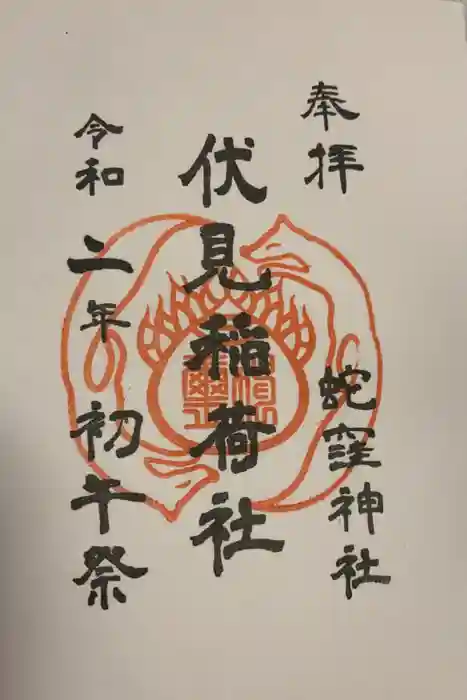 奉拝
蛇窪神社
伏見稲荷社
令和二年初午祭